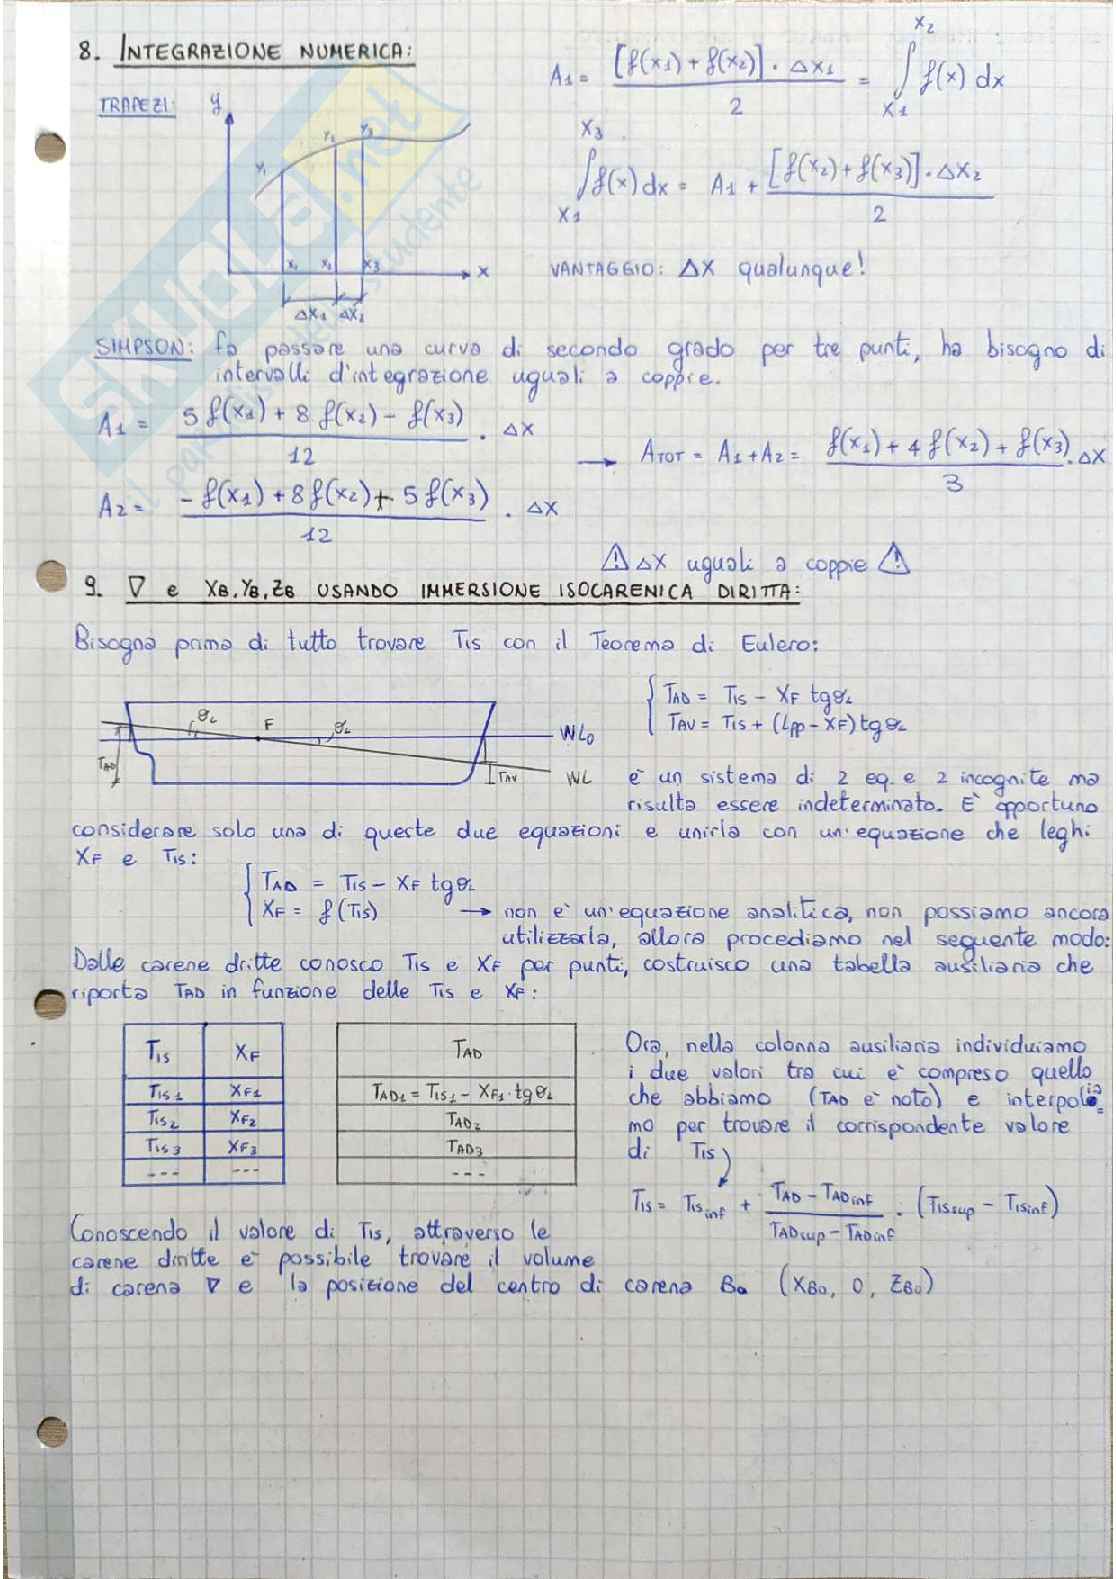 8. INTEGRAZIONE NUMERICA:
TRAPEZI:
y
Y1 Y2 Y3
X1 X2 X3 X
ΔX1 ΔX2
A1 = [f(x1) + f(x2)] · Δx1 / 2 = ∫_{X1}^{X2} f(x) dx
∫_{X1}^{X3} f(x) dx = A1 + [f(x2) + f(x3)] · Δx2 / 2
VANTAGGIO: ΔX qualunque!
SIMPSON: fa passare una curva di secondo grado per tre punti, ha bisogno di
intervalli d'integrazione uguali a coppie.
A1 = 5 f(x1) + 8 f(x2) - f(x3) / 12 · ΔX
A2 = - f(x1) + 8 f(x2) + 5 f(x3) / 12 · ΔX
→ ATOT = A1 + A2 = f(x1) + 4 f(x2) + f(x3) / 3 · ΔX
⚠ ΔX uguali a coppie ⚠
9. ∇ e XB, YB, ZB USANDO IMMERSIONE ISOCARENICA DIRITTA:
Bisogna prima di tutto trovare TIS con il Teorema di Eulero:
θL F θL WL0
TAD TAV WL
{ TAD = TIS - XF tgθL
TAV = TIS + (LPP - XF) tgθL
è un sistema di 2 eq. e 2 incognite ma
risulta essere indeterminato. E' opportuno
considerare solo una di queste due equazioni e unirla con un'equazione che leghi
XF e TIS:
{ TAD = TIS - XF tgθL
XF = f(TIS) → non è un'equazione analitica, non possiamo ancora
utilizzarla, allora procediamo nel seguente modo:
Dalle carene dritte conosco TIS e XF per punti, costruisco una tabella ausiliaria che
riporta TAD in funzione delle TIS e XF:
TIS XF TAD
TIS1 XF1 TAD1 = TIS1 - XF1 · tgθL
TIS2 XF2 TAD2
TIS3 XF3 TAD3
--- --- ---
Ora, nella colonna ausiliaria individuiamo
i due valori tra cui è compreso quello
che abbiamo (TAD è noto) e interpolia=
mo per trovare il corrispondente valore
di TIS
TIS = TISinf + TAD - TADinf / TADsup - TADinf · (TISsup - TISinf)
Conoscendo il valore di TIS, attraverso le
carene diritte è possibile trovare il volume
di carena ∇ e la posizione del centro di carena B0 (XB0, 0, ZB0)